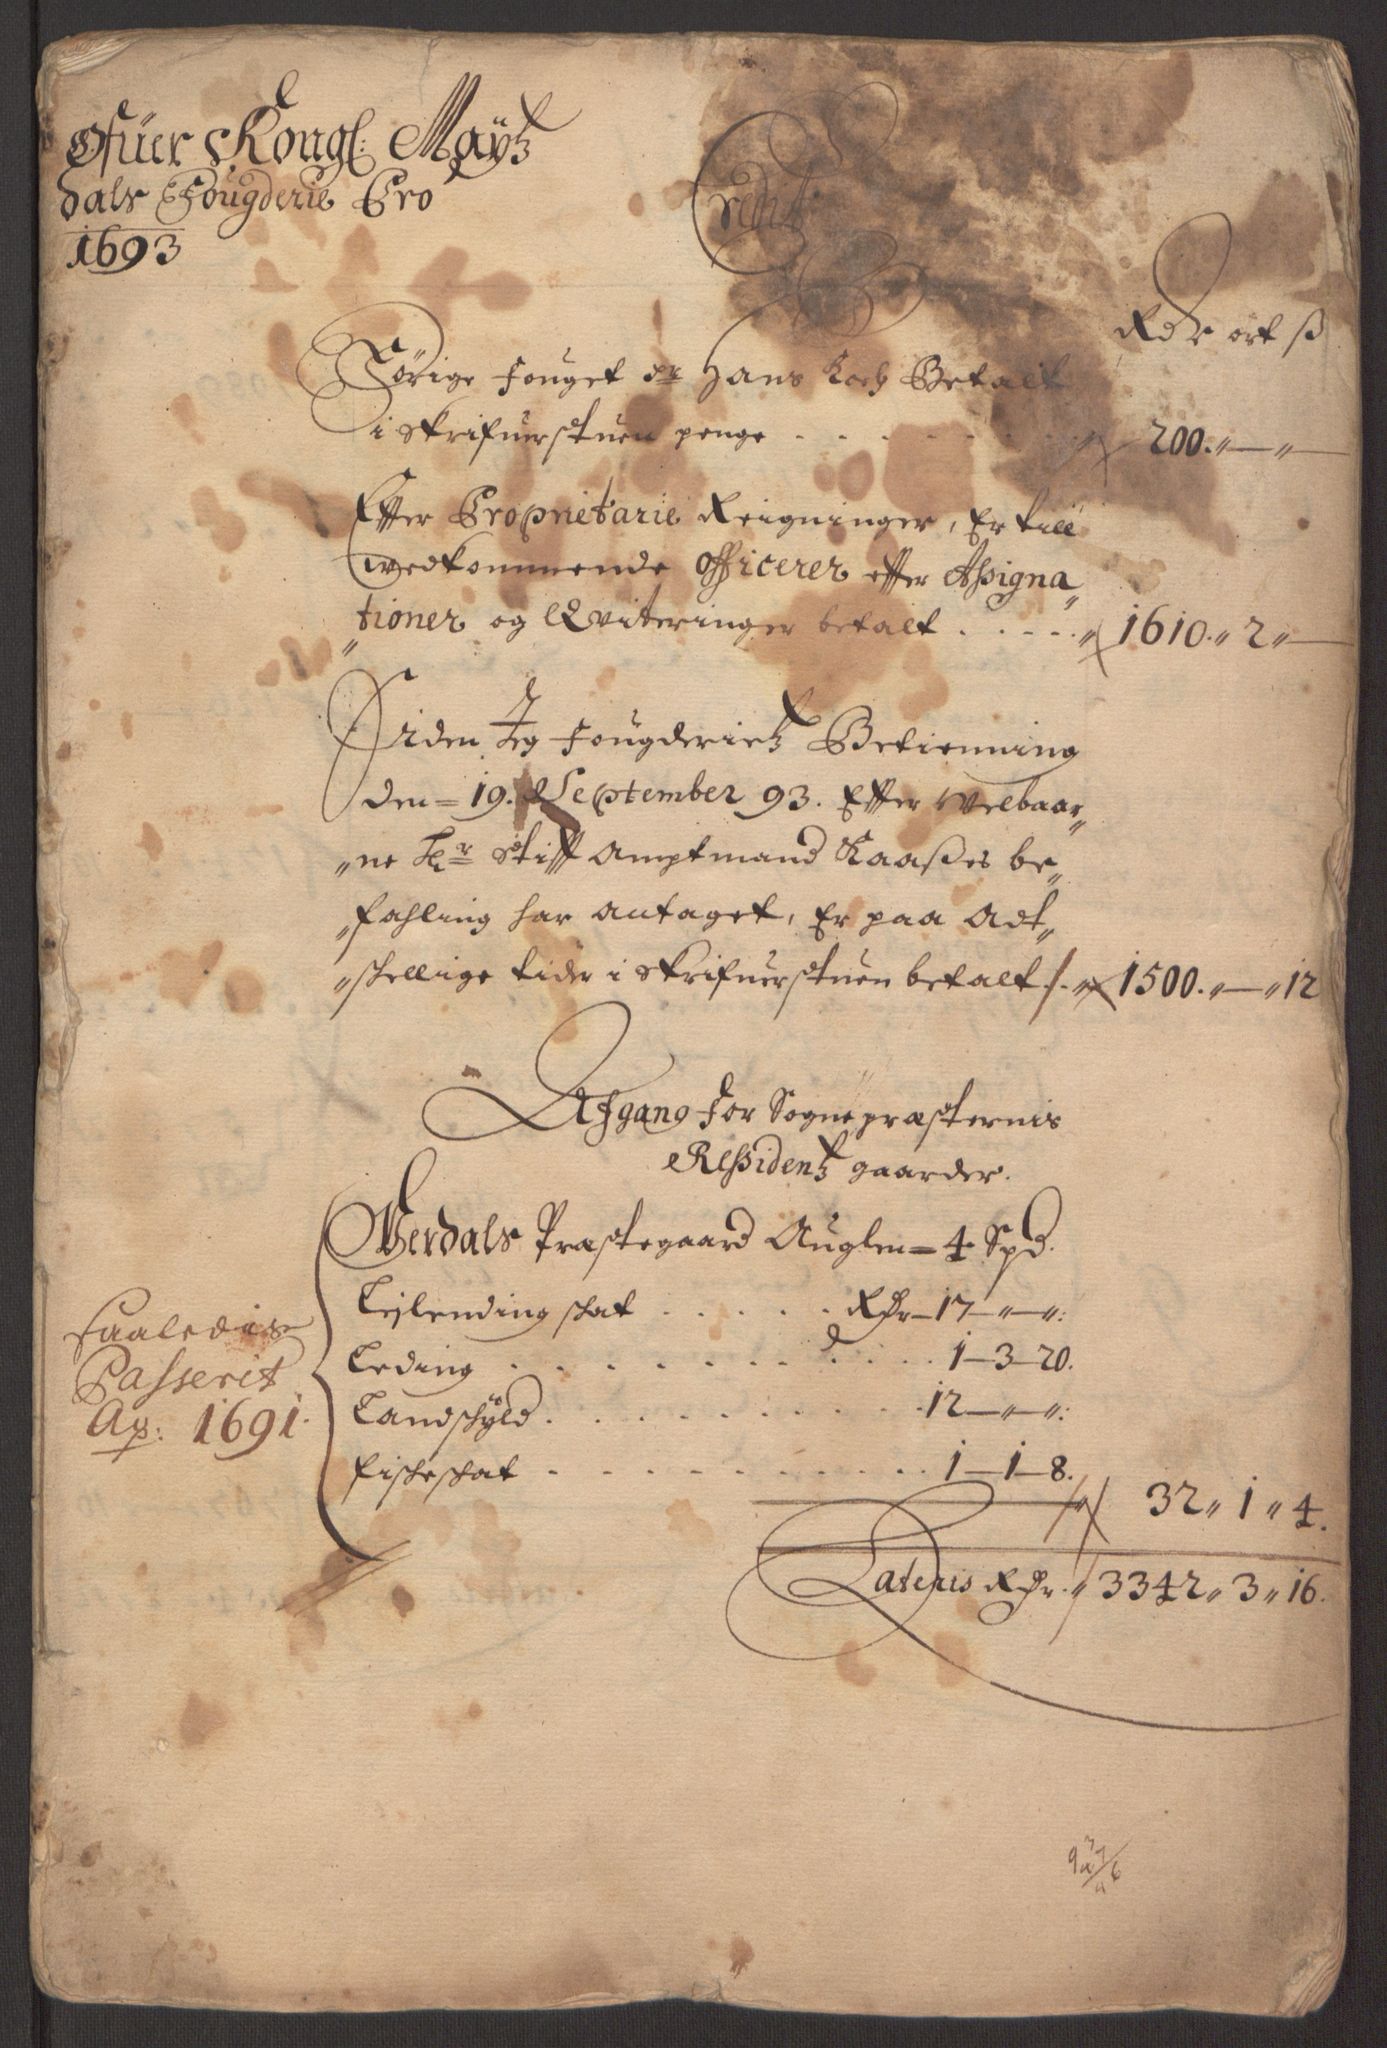 Ofuer Kongl: Maÿtz
dals Fougderie Pro
1693
Credit
Rdr ort ß
Förige fouget Sr Hans Koch Betalt
i skrifuerstuen penge . . . . . . . " 200. " — "
Effter Proprietarie Reigninger, Er till
wedkommende Officerer effter Aßigna„
„tioner og Qviteringer betalt . . . . . " 1610. " 2 " —
Siden Jeg fougderietz Betienning
den = 19. September 93. Effter Welbaar„
„ne Hr Stifft Amptmand Kaaßes be„
„fahling har antaget, Er paa Adt„
„skellige tider i skrifuerstuen betalt . . " 1500. " — " 12
Afgang for Sognepræsternis
Reßidentz gaarder.
Werdals Præstegaard Auglen = 4 Spd.
Leilending skat . . . . . Rdr – 17 – " – " :
Leding . . . . . . . . . . 1 – 3 – 20.
Landskÿld . . . . . . . . . 12 – " – " :
fiskeskat . . . . . . . . . . 1 – 1 – 8.
" 32 " 1 " 4.
Saaledis
Passerit
Ao: 1691.
Lateris Rdr. " 3342 " 3 " 16.